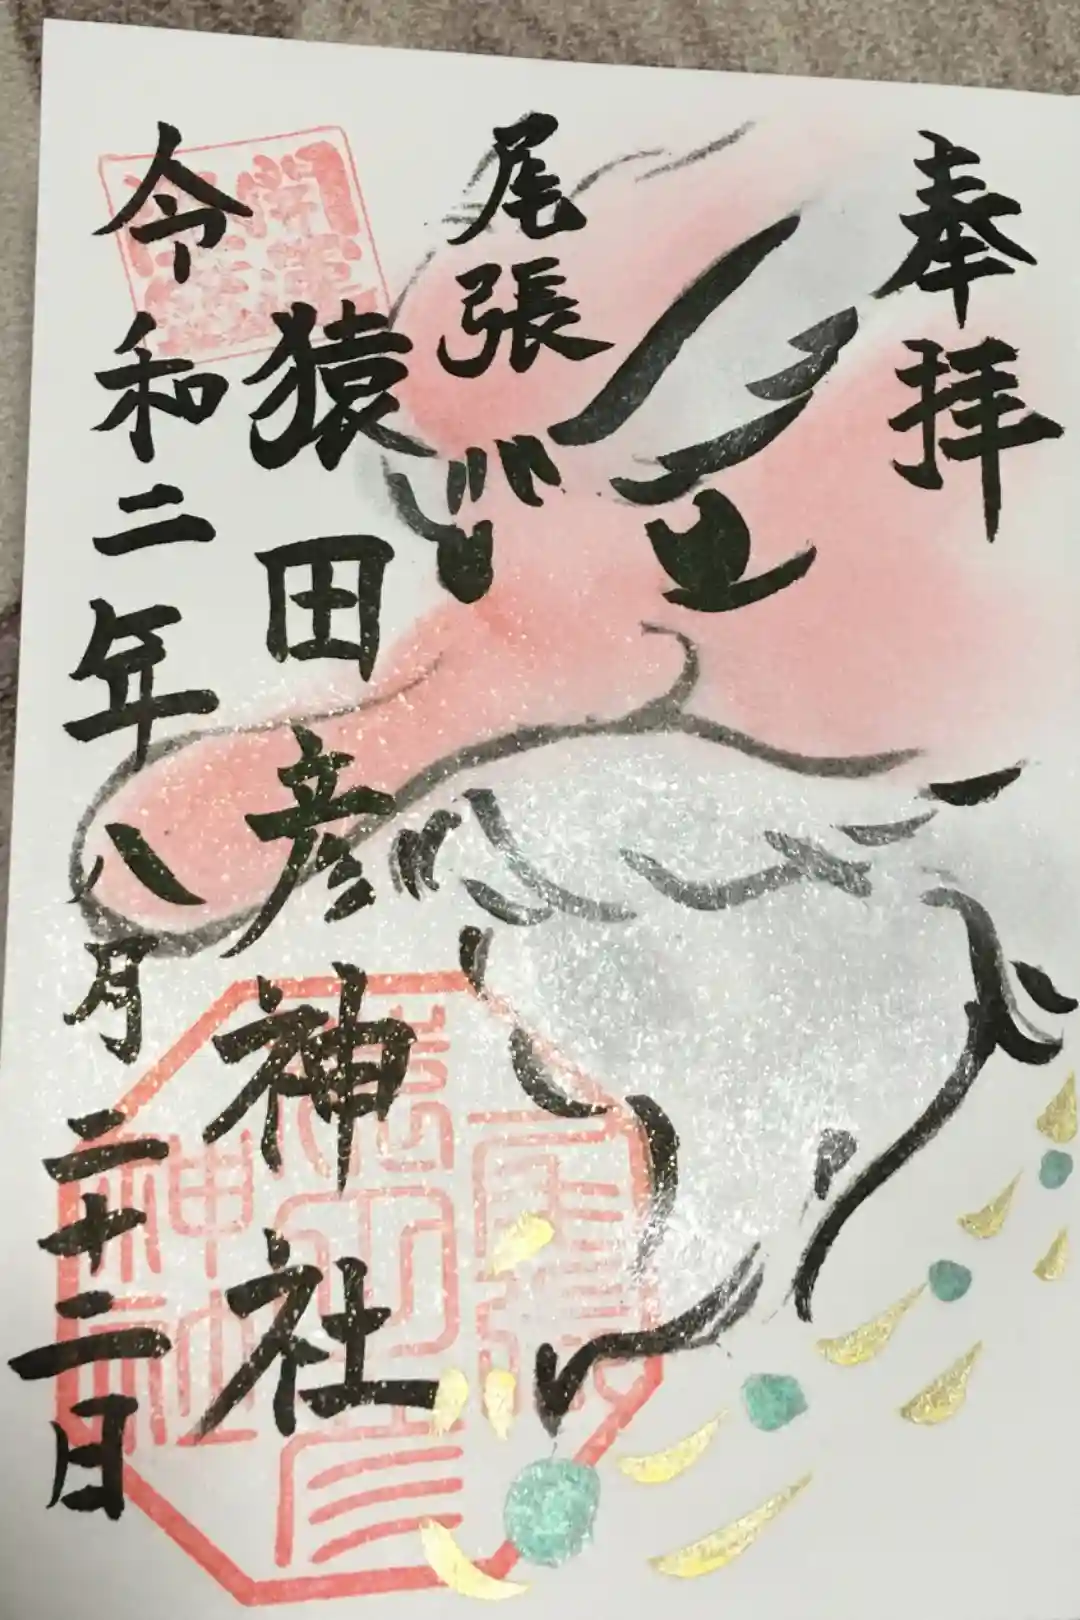 奉拝
尾張
猿田彦神社
令和二年八月二十二日
尾張
猿田彦
神社